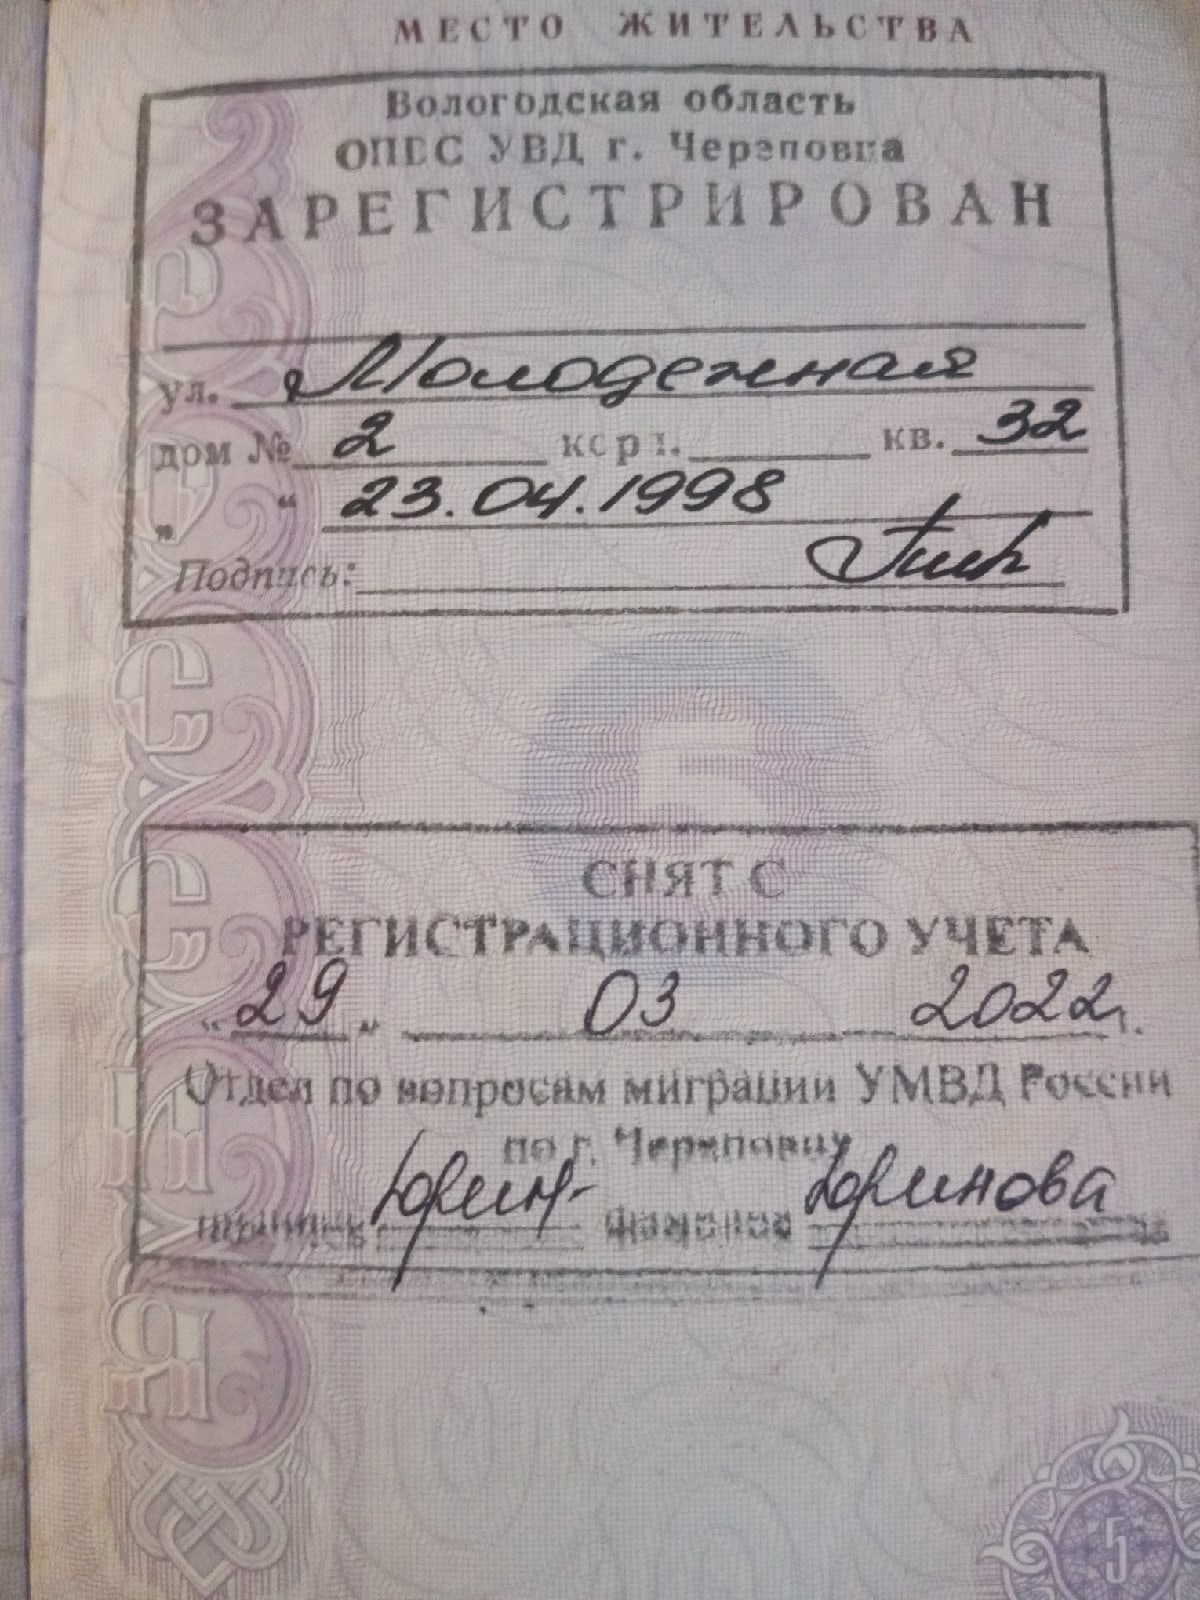 МЕСТО ЖИТЕЛЬСТВА
Вологодская область
ОПВС УВД г. Череповца
ЗАРЕГИСТРИРОВАН
ул. Молодежная
дом № 2 корп. кв. 32
„ “ 23.04.1998
Подпись:
5
СНЯТ С
РЕГИСТРАЦИОННОГО УЧЕТА
„29“ 03 2022г.
Отдел по вопросам миграции УМВД России
по г. Череповцу
подпись фамилия Юринова
5